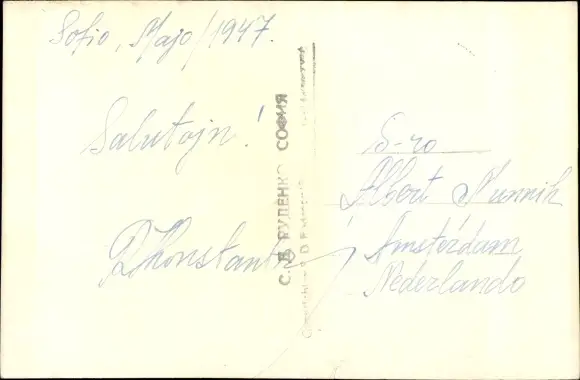 Sofio, Majo/1947.
Salutojn!
S-ro
Albert Nunnik
Amsterdam
Nederlando
С. Д. РУДЕНКО СОФИЯ